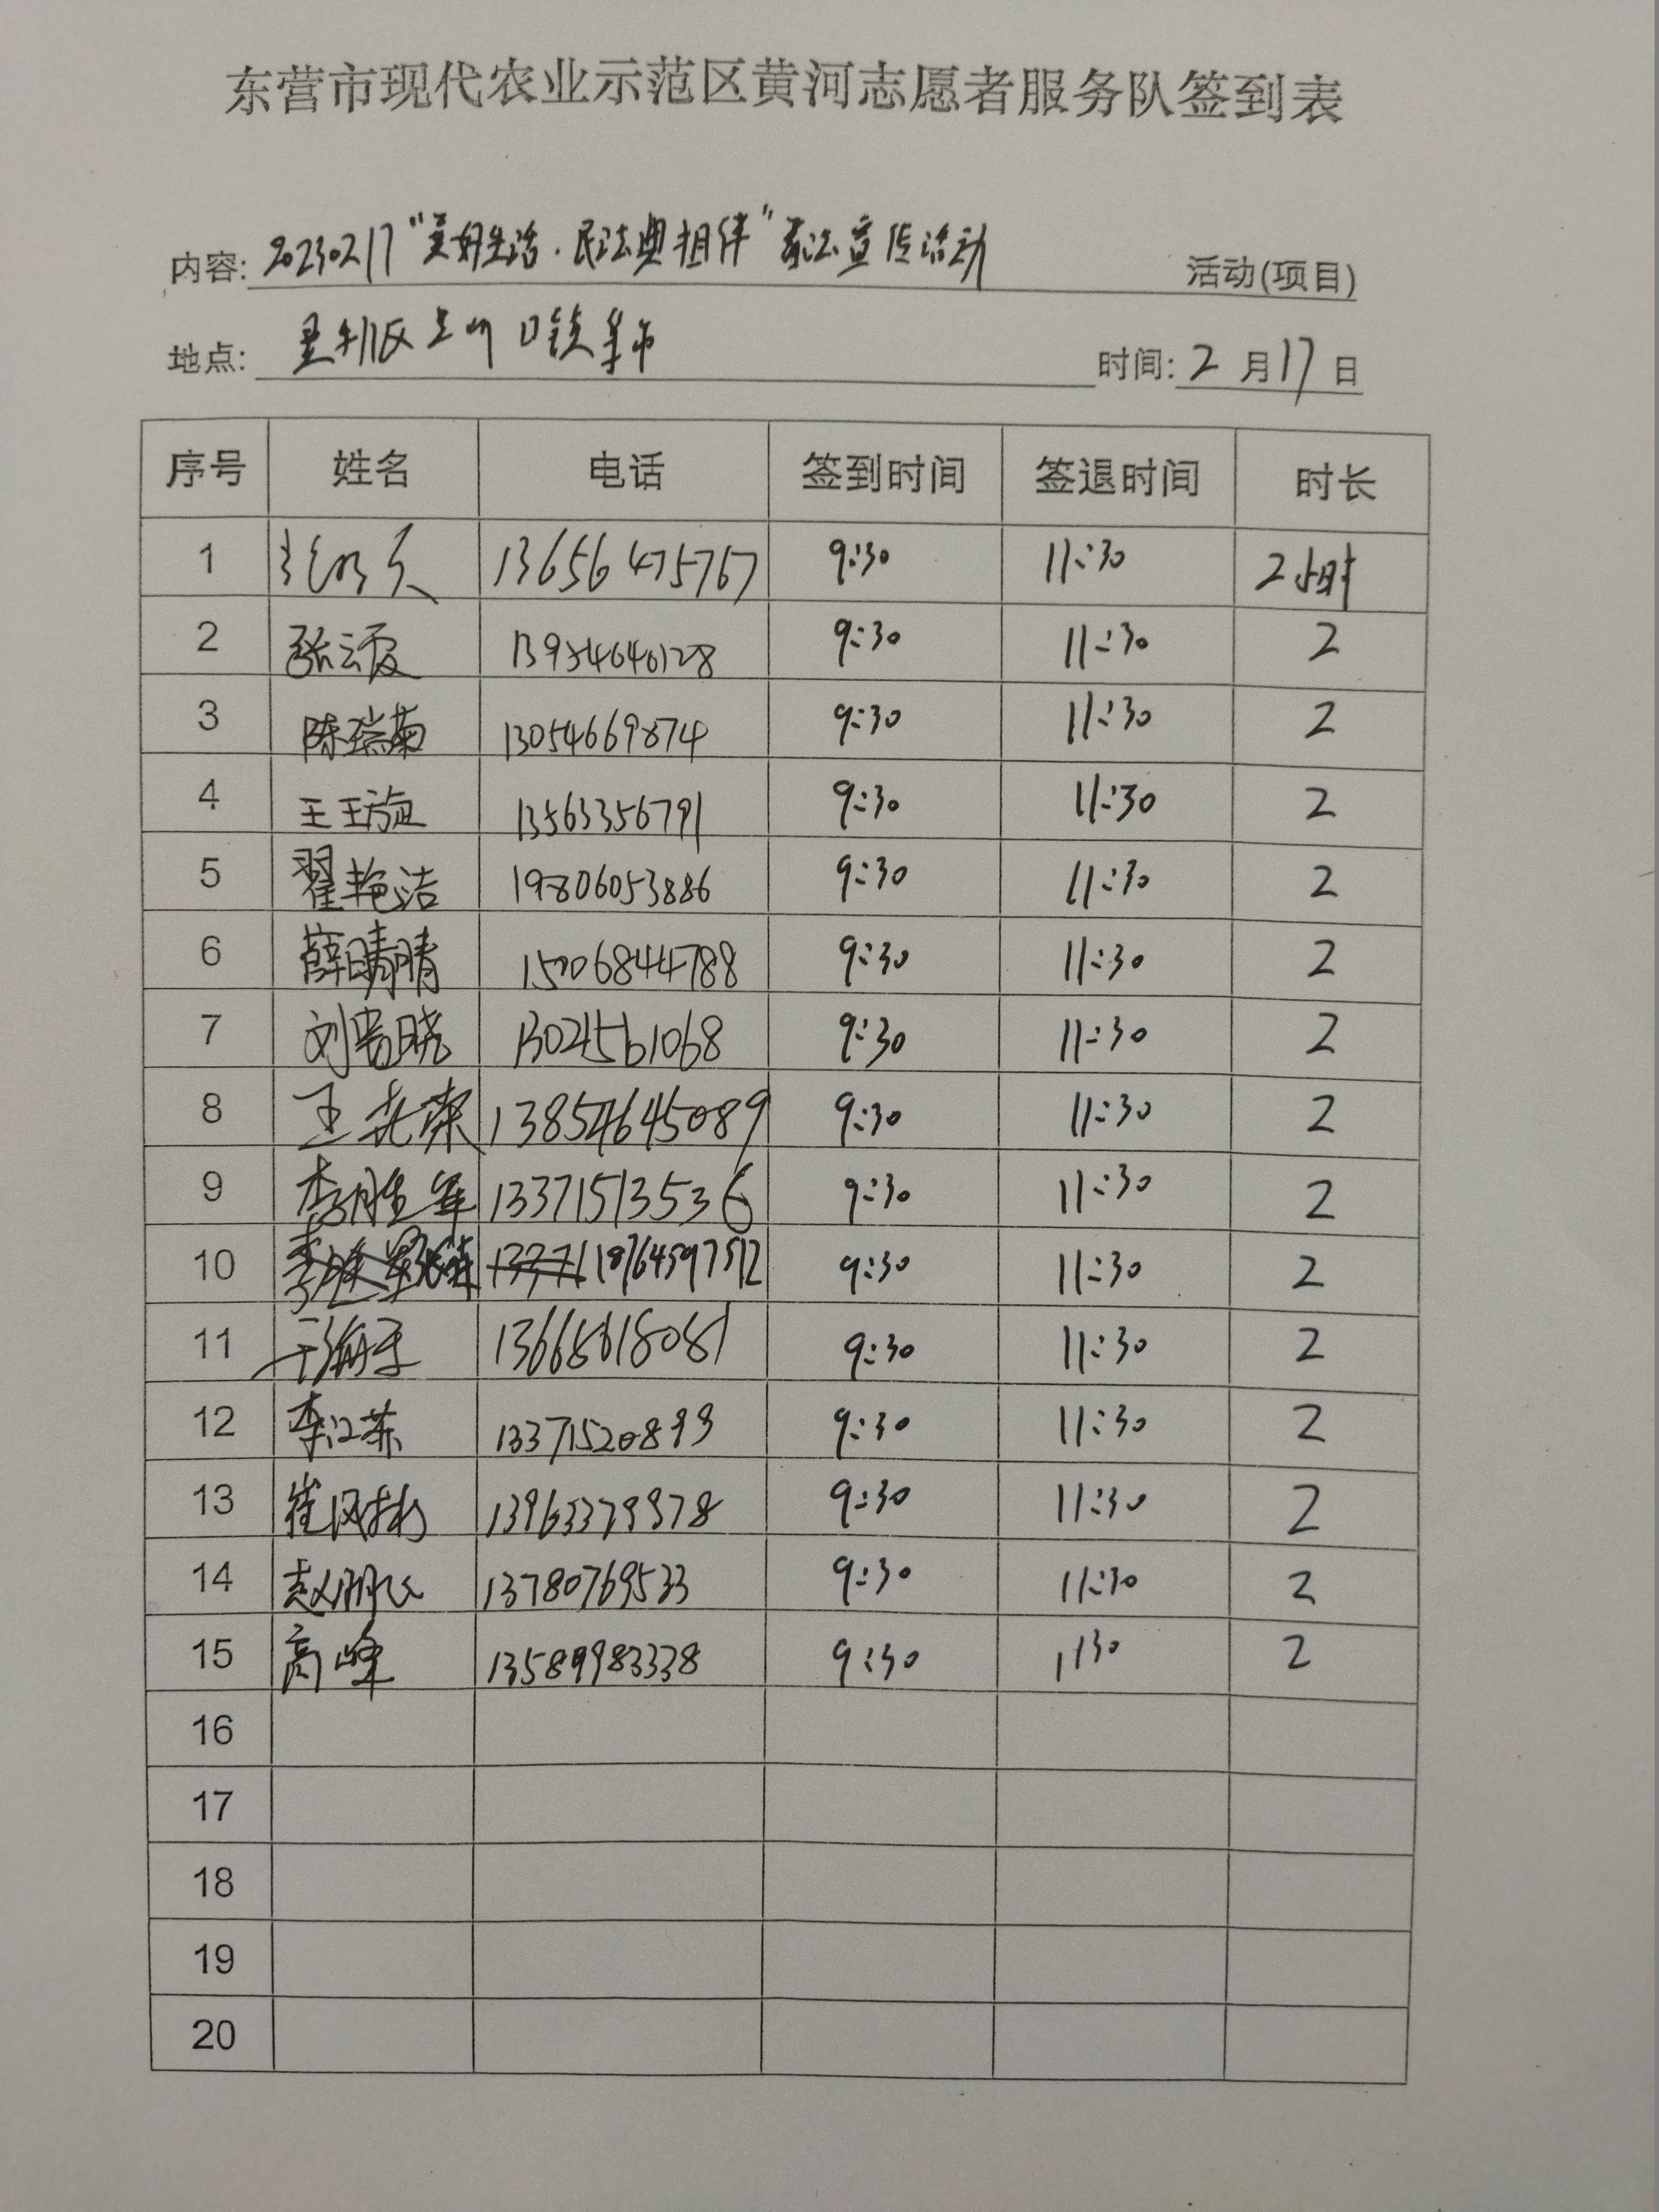 东营市现代农业示范区黄河志愿者服务队签到表
内容: 20230217“美好生活·民法典相伴”普法宣传活动 活动(项目)
地点: 垦利区 口镇集市 时间: 2 月 17 日
序号 姓名 电话 签到时间 签退时间 时长
1 13656475767 9:30 11:30 2小时
2 张云霞 13954640128 9:30 11:30 2
3 陈瑞菊 13054669874 9:30 11:30 2
4 王璇 13563356791 9:30 11:30 2
5 翟艳洁 19806053886 9:30 11:30 2
6 薛晴晴 15006844788 9:30 11:30 2
7 刘 晓 13021561068 9:30 11:30 2
8 王 荣 13854645089 9:30 11:30 2
9 李胜军 13371513536 9:30 11:30 2
10 18764597512 9:30 11:30 2
11 海 13668618081 9:30 11:30 2
12 李江苏 13371520899 9:30 11:30 2
13 崔风 13963379978 9:30 11:30 2
14 赵鹏飞 13780769533 9:30 11:30 2
15 高峰 13589983338 9:30 1130 2
16
17
18
19
20